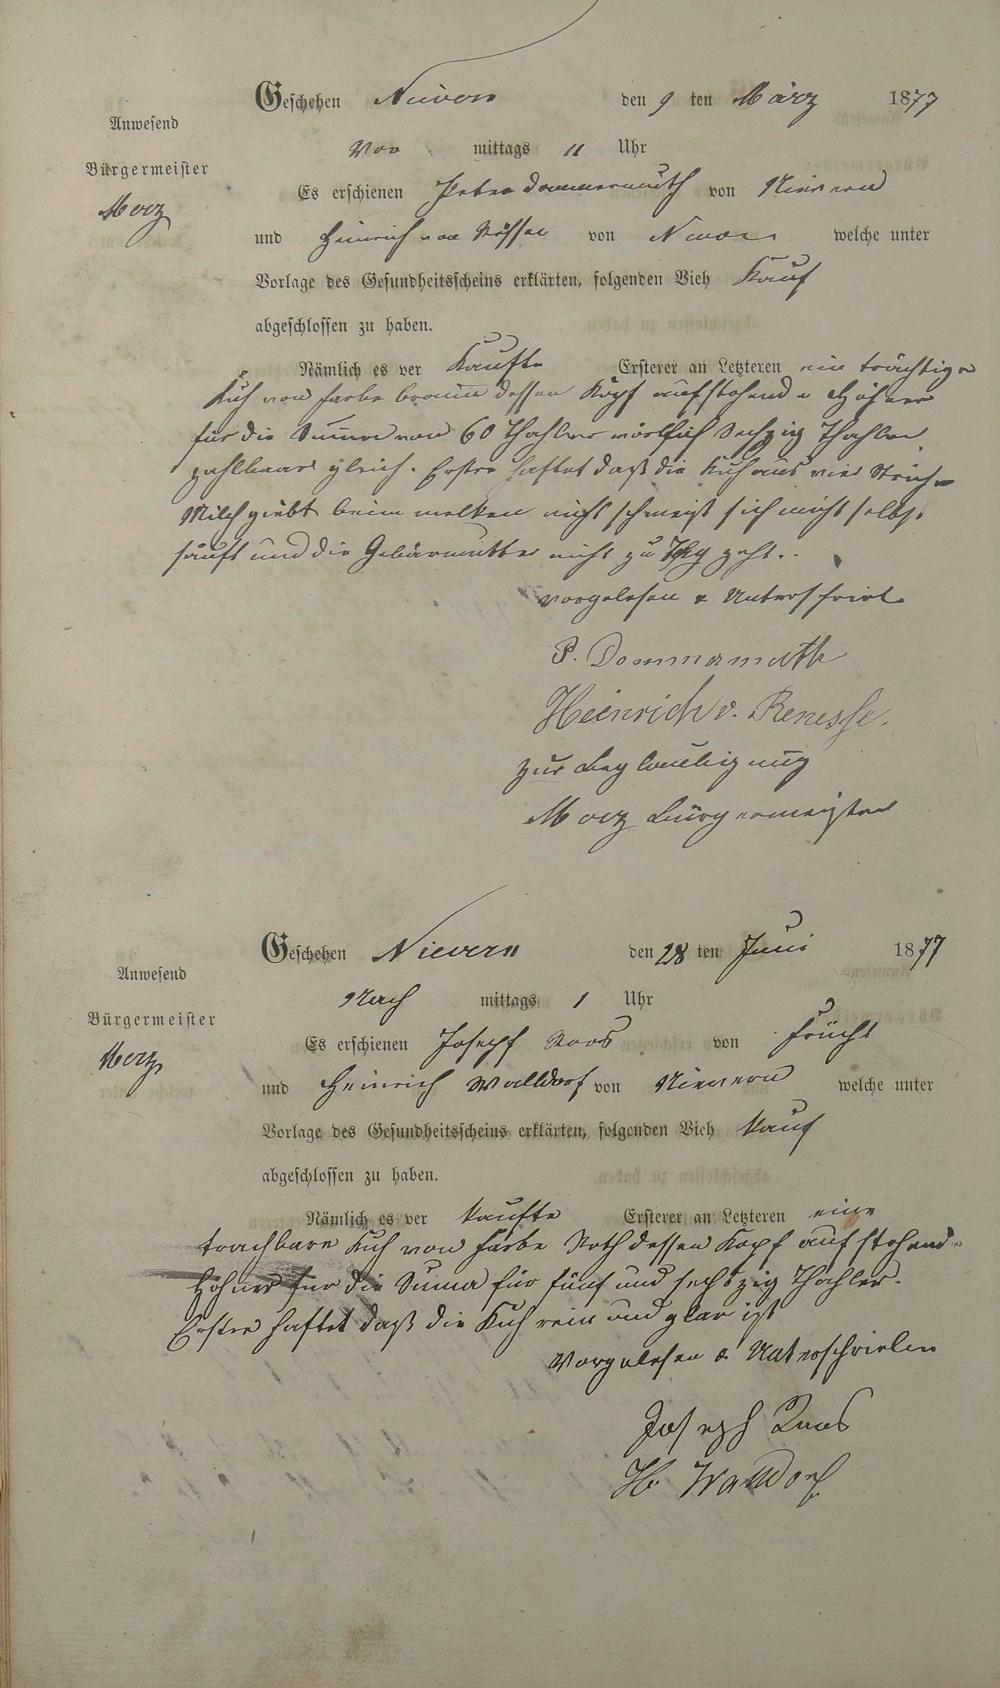 Geschehen Nievern den 9 ten März 1877
Anwesend
Vor mittags 11 Uhr
Bürgermeister
Es erschienen Peter Dommermuth von Nievern
Morz
und Heinrich von von Nievern welche unter
Vorlage des Gesundheitsscheins erklärten, folgenden Vieh Kauf
abgeschlossen zu haben.
Nämlich es ver Kaufte Ersterer an Letzteren ein trächtige
Kuh von Farbe braun dessen Kopf aufstehende Hörner
für die Summe von 60 Thahler wörtlich Sechzig Thahler
zahlbaar gleich. Erster haftet daß die Kuh aus vier Striche
Milch giebt beim melken nicht schmeist sich nicht selbst
säuft und die Gebärmutter nicht zu Tag geht.
vorgelesen & Unterschriel
P. Dommermuth
Heinrich v. Renesse.
zur Beglaubigung
Morz Bürgermeister
Geschehen Nievern den 28 ten Juni 1877
Anwesend
Nach mittags 1 Uhr
Bürgermeister
Es erschienen Josepf Roos von Frücht
Morz
und Heinrich Walldorf von Nievern welche unter
Vorlage des Gesundheitsscheins erklärten, folgenden Vieh Kauf
abgeschlossen zu haben.
Nämlich es ver Kaufte Ersterer an Letzteren eine
trachbare Kuh von Farbe Roth dessen Kopf auf stehende
Hörner für die Suma für fünf und sechszig Thahler.
Erster haftet daß die Kuh rein und glar ist
Vorgelesen & Unterschrielen
Joseph Roos
H. Walldorf